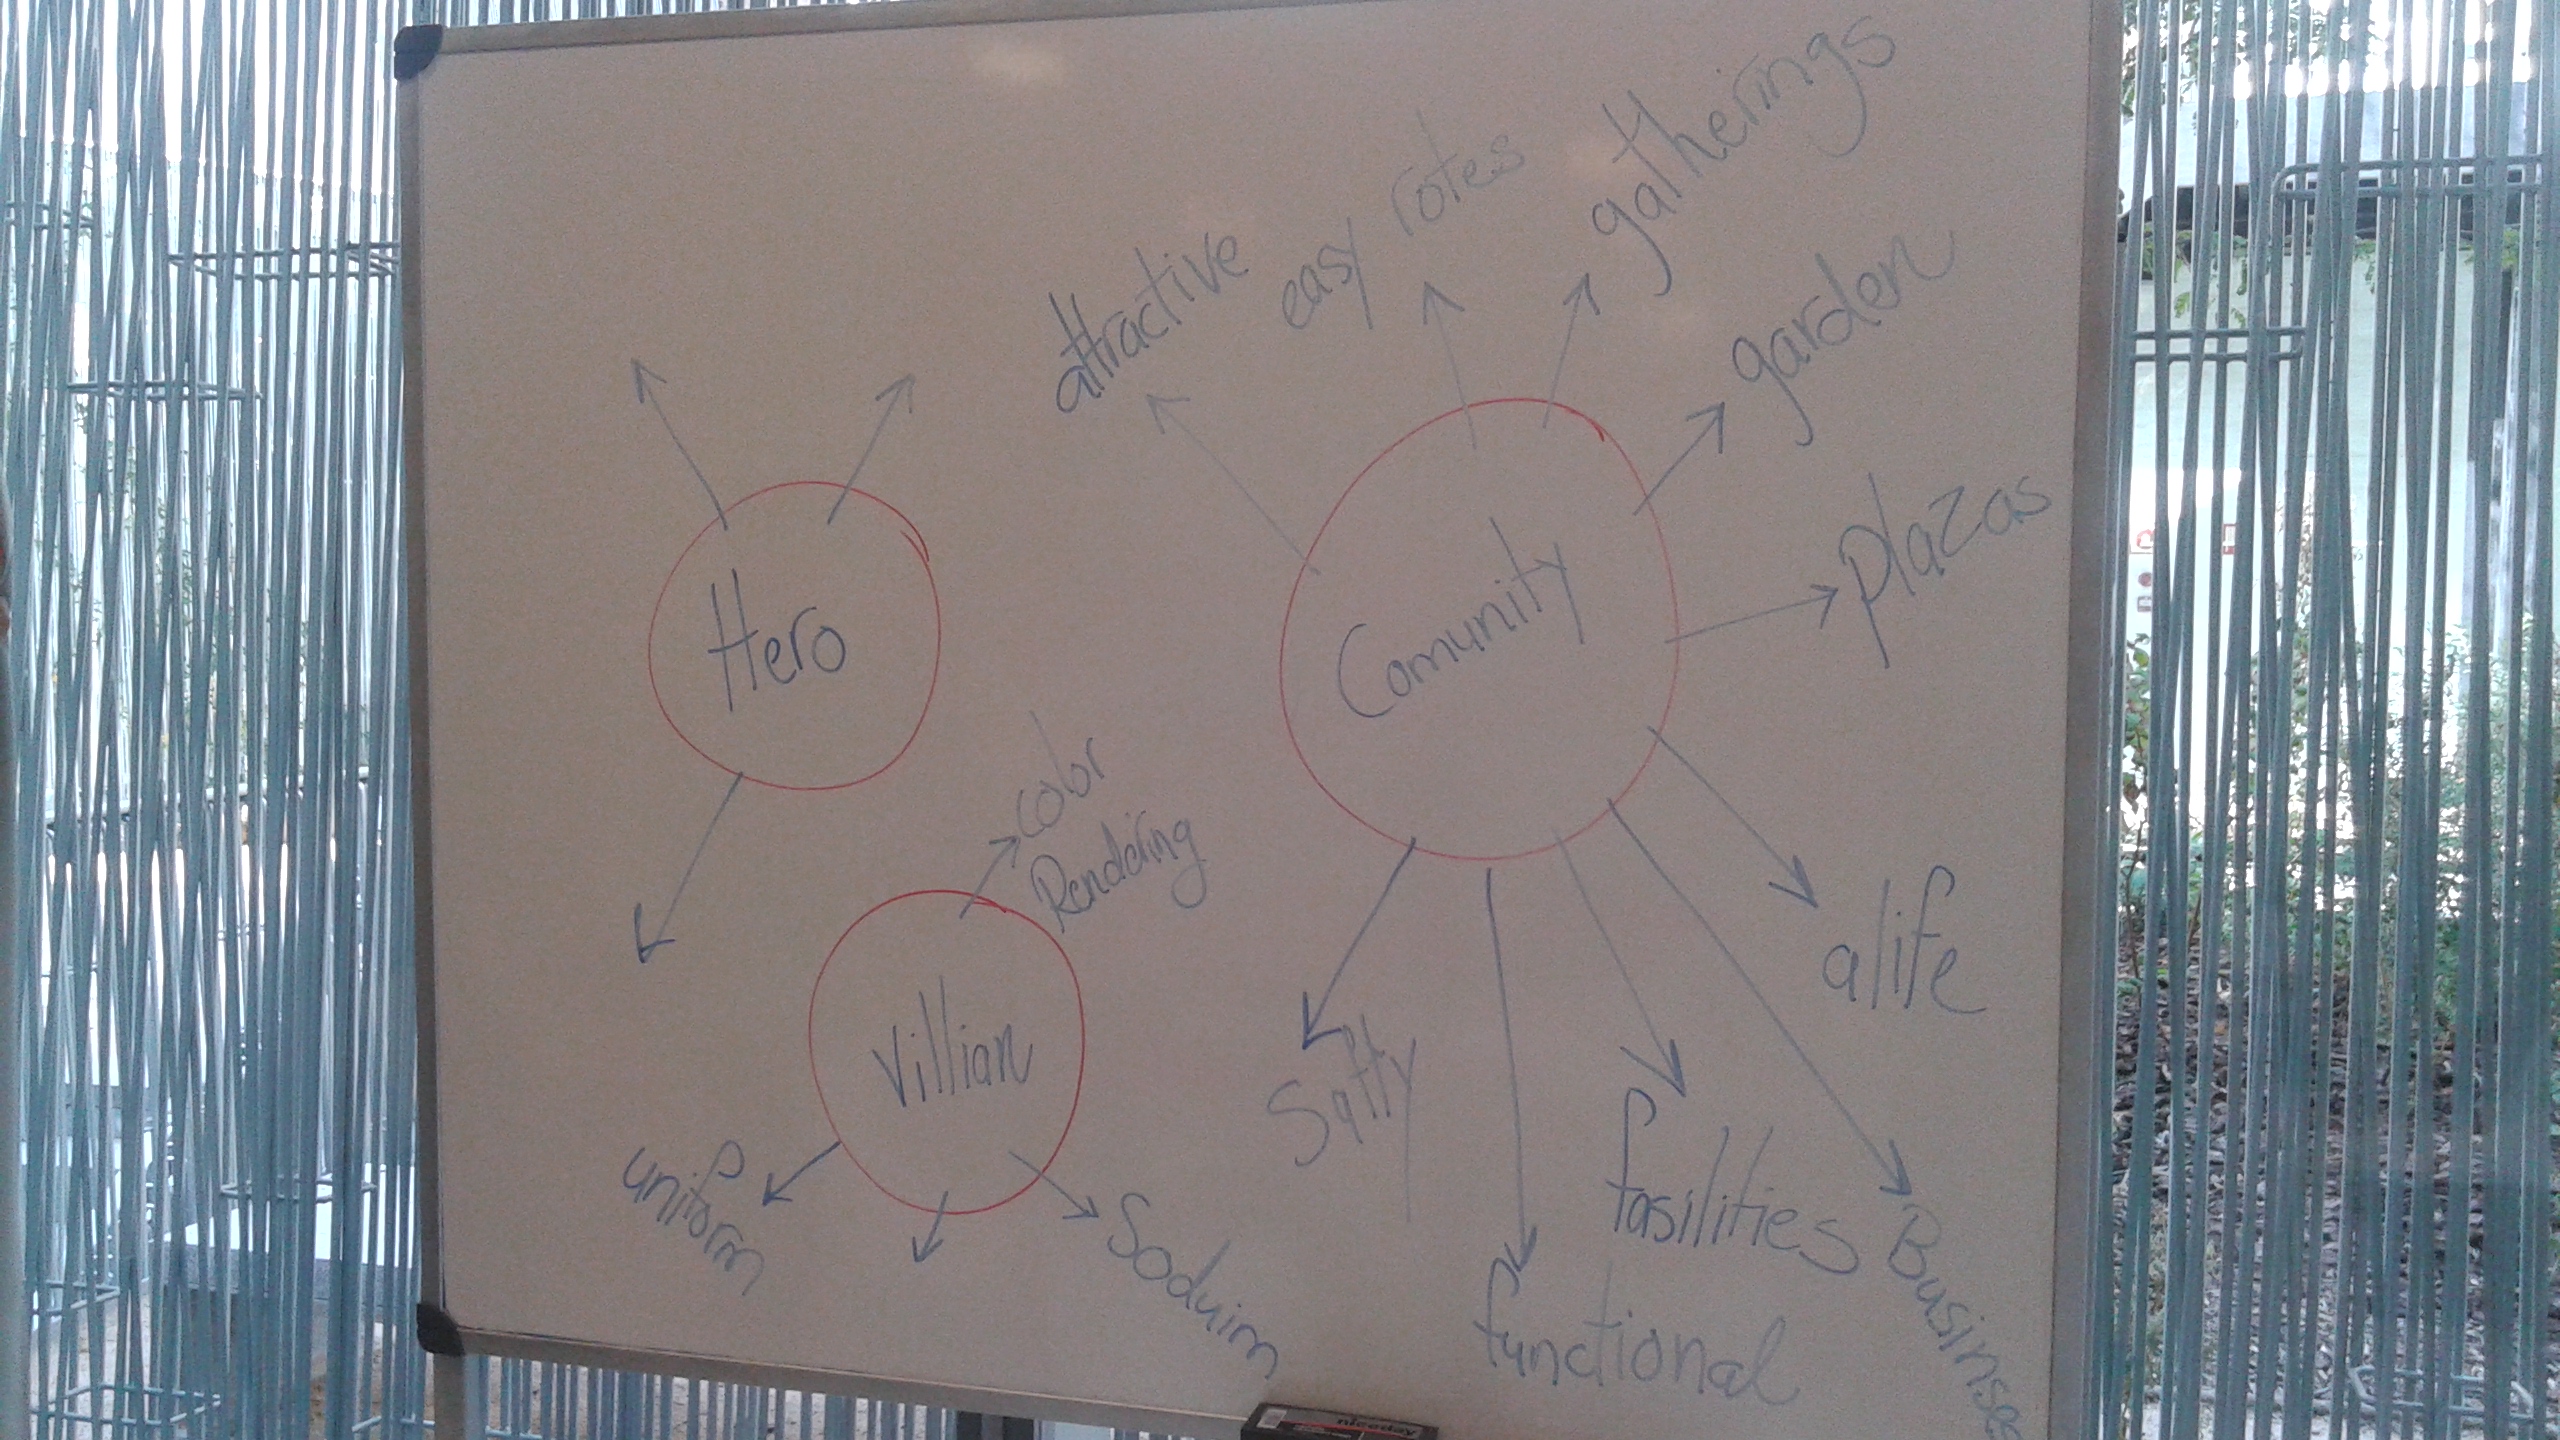 gatherings
easy rotes
attractive
garden
plazas
Comunity
Hero
color
Rendering
alife
Villian
Saffy
fasilities
uniform
Soduim
functional
Businse
niceday